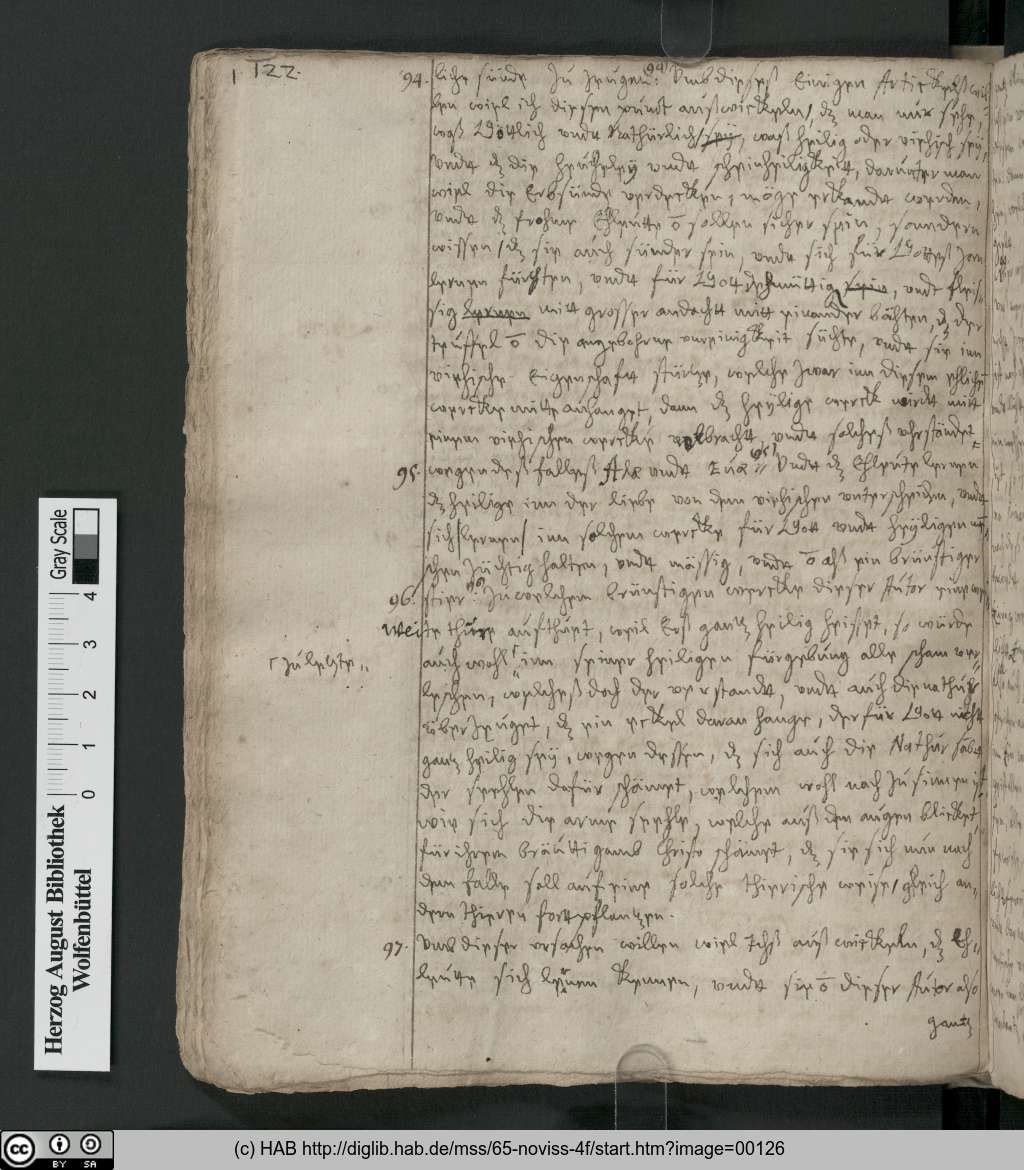 122.
94. liche sünde zu zeugen: (94) Umb dießeß Einigen Artickelß wil-
len wiel ich diesen punct außwickelen, dz man nur sehe,
waß Göttlich undt Nathürlich sey, waß heilig oder viehisch sey,
Undt dz die heücheley undt scheinheiligkeit, darunter man
wiel die Erbsünde verdecken, möge erkandt werden,
undt dz frohme Ehleütte õ sollen sicher sein, sonndern
wissen dz sie auch sünder sein, undt sich für Gotteß Zorn
lernen fürchten, undt für Gott dehmüttig sein, undt fleis-
sig lernen mitt grosser andacht mitt einander bähten, dz der
teüffel õ die angebohrne unreinigkeit süchte, undt sie inn
viehische Eigenschafft stürtze, welche zwar inn diesem ehlichen
wercke mitte anhanget, dann dz heylige werck wirdt mitt
einem viehischen wercke volbracht, undt solcheß uhrständet
95. wegen deß falleß Adæ undt Euæ (95) Undt dz Ehleute lernen
dz heilige inn der liebe von dem viehischen unterscheiden, undt
sich lernen inn solchem wercke für Gott undt heyligen
schen züchtig halten, undt mässig, undt õ alß ein brünstiger
96. stier (96) Zu welchem brünstigen wercke dieser Autor eine
weite thüre aufthuet, weil Erß gantz heilig heisset, so würde
auch wohl inn seiner heiligen fürgebung alle scham ver-
zuletzte
leschen, welcheß doch der verstandt, undt auch die nathühr
überzeuget, dz ein eckel daran hange, der für Gott nicht
gantz heilig sey, wegen dessen, dz sich auch die Nathur selbst
der seehlen dafür schämet, welchem wohl nach zu sinnen ist
wie sich die arme seehle, welche auß den augen blicket
für ihrem bräuttigamb Christo schämet, dz sie sich nun nach
dem falle soll auf eine solche thierische weise, gleich an-
dern thieren fortpflantzen.
97. Umb dieser ursachen willen wiel Ichß außwickeln, dz Eh-
leutte sich lernen kennen, undt sie õ dieser Autor also
gantz
Herzog August Bibliothek
Wolfenbüttel
Gray Scale
0 1 2 3 4
cc BY SA
(c) HAB http://diglib.hab.de/mss/65-noviss-4f/start.htm?image=00126